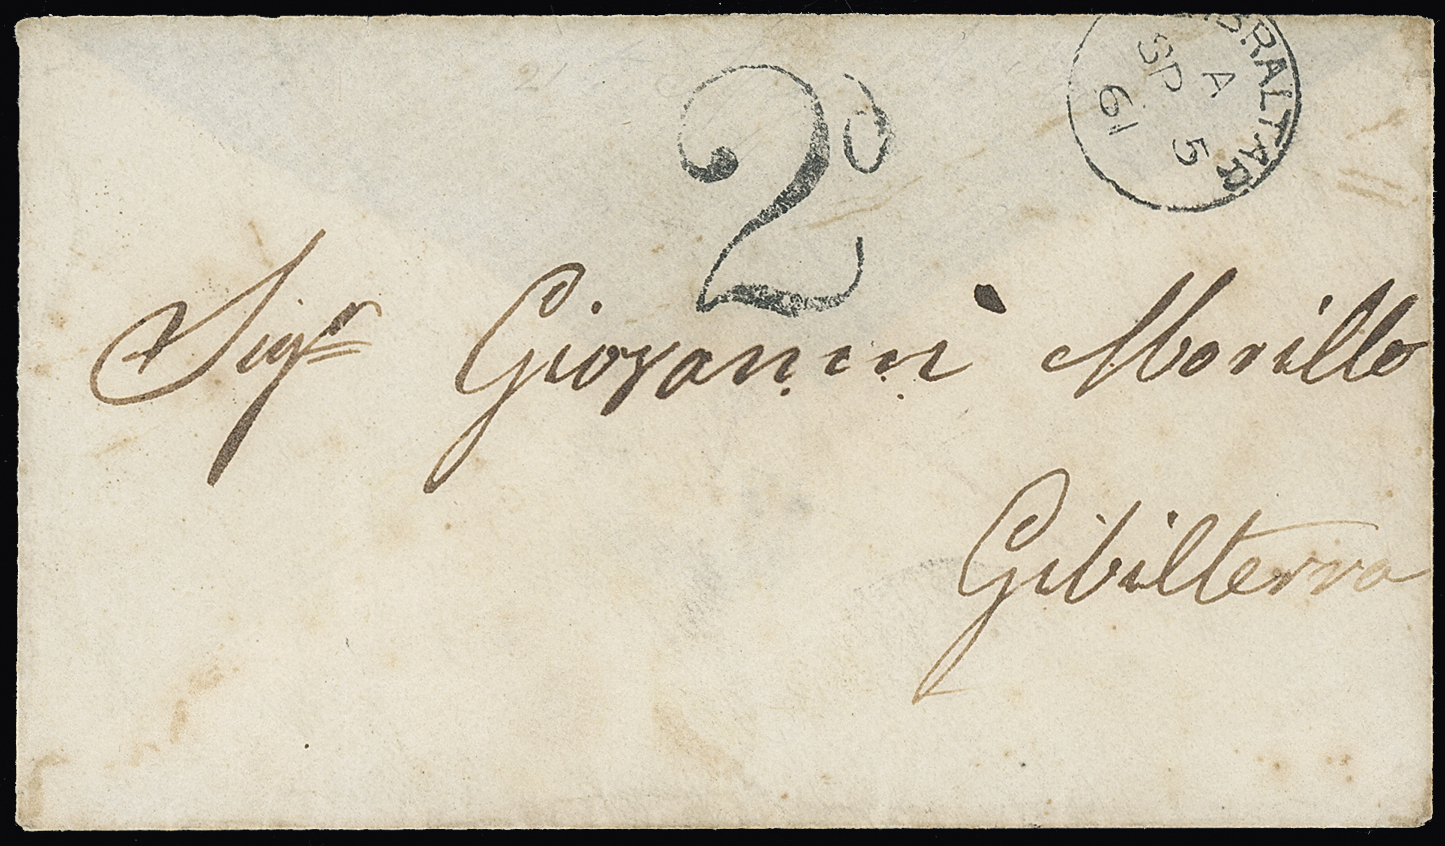 GIBRALTAR
A
SP 5
61
2D
Sigr Giovanni Morillo
Gibilterra